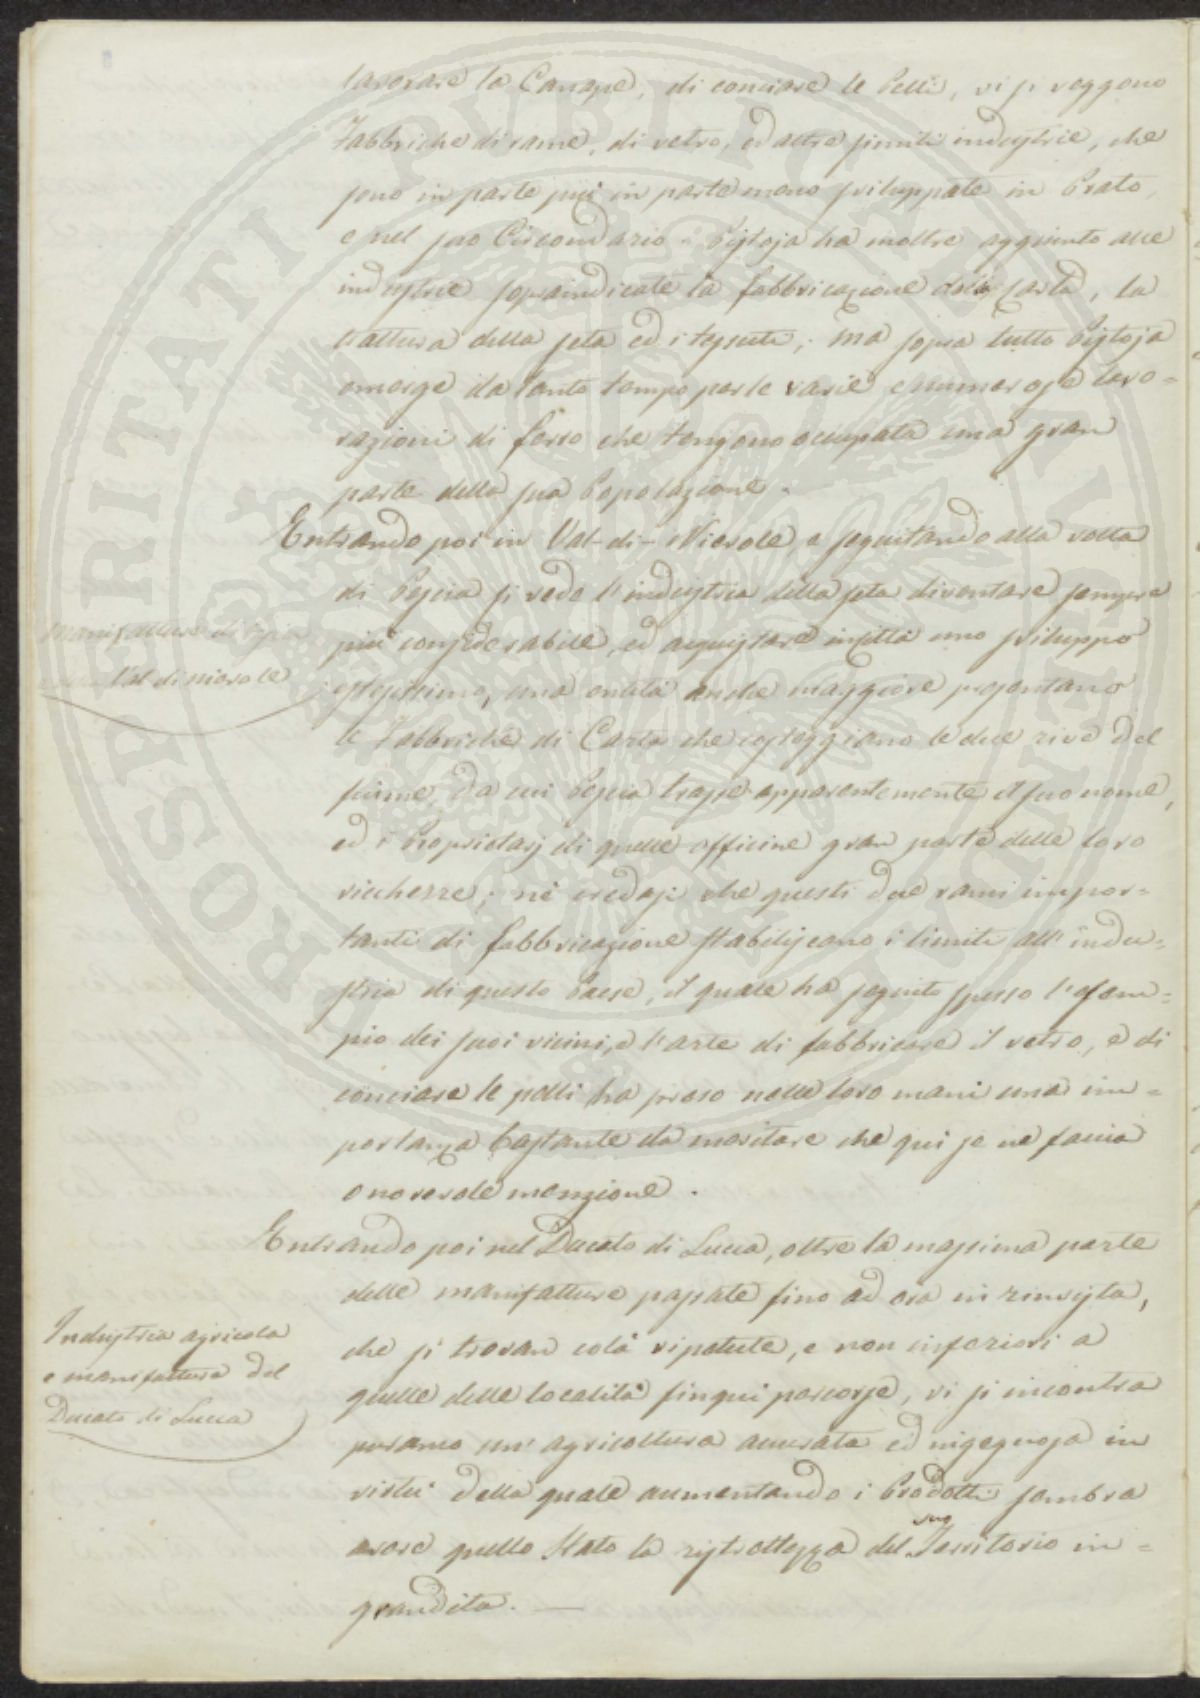 lavorare la Canape, di conciare le Pelli, vi si veggono
Fabbriche di rame, di vetro, ed altre simili industrie, che
sono in parte più in parte meno sviluppate in Prato,
e nel suo Circondario. Pistoja ha inoltre aggiunto alle
industrie sopraindicate la fabbricazione della Carta, la
trattura della seta ed i tessuti; ma sopra tutto Pistoja
emerge da tanto tempo per le varie e numerose lavo=
razioni di ferro che tengono occupata una gran
parte della sua Popolazione.
Entrando poi in Val-di-Nievole, e seguitando alla volta
di Pescia si vede l'industria della seta diventare sempre
più considerabile, ed acquistare in città uno sviluppo
estesissimo, una entità anche maggiore presentano
le Fabbriche di Carta che costeggiano le due rive del
fiume, da cui Pescia trasse apparentemente il suo nome,
ed i Proprietarj di quelle officine gran parte delle loro
ricchezze; nè credasi che questi due rami impor=
tanti di fabbricazione stabiliscano i limiti all'indu=
stria di questo Paese, il quale ha seguito spesso l'esem=
pio dei suoi vicini, e l'arte di fabbricare il vetro, e di
conciare le pelli ha preso nelle loro mani una im=
portanza bastante da meritare che qui se ne faccia
onorevole menzione.
Manifatture di Pescia
Val di nievole
Entrando poi nel Ducato di Lucca, oltre la massima parte
delle manifatture passate fino ad ora in rivista,
che si trovan colà ripetute, e non inferiori a
quelle delle località finqui percorse, vi si incontra
puranco un'agricoltura accurata ed ingegnosa in
virtù della quale aumentando i Prodotti sembra
avere quello Stato la ristrettezza del suo Territorio in=
grandita. —
Industria agricola
e manifattura del
Ducato di Lucca
PROSPERITATI PUBLICAE AVGENDAE